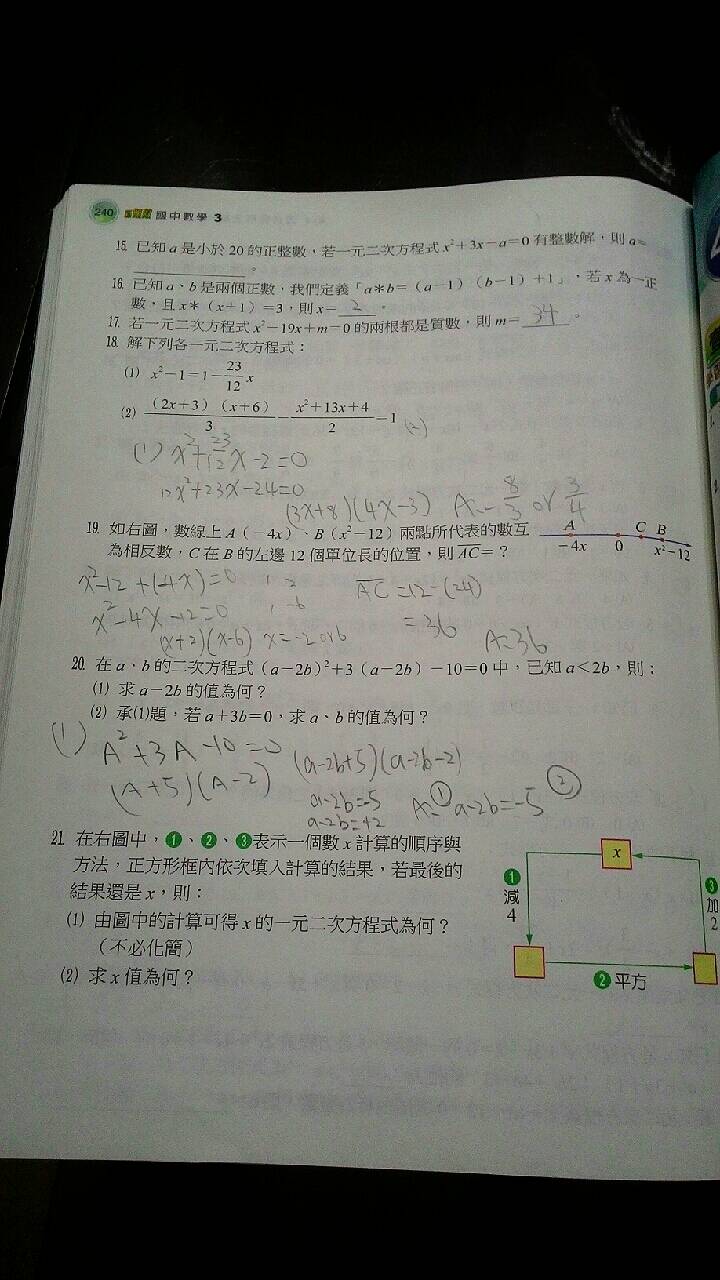 240 國中數學 3
15. 已知 a 是小於 20 的正整數，若一元二次方程式 x²+3x－a=0 有整數解，則 a=
＿＿＿＿。
16. 已知 a、b 是兩個正數，我們定義「a＊b=（a－1）（b－1）+1」，若 x 為一正
數，且 x＊（x+1）=3，則 x= 2 。
17. 若一元二次方程式 x²－19x+m=0 的兩根都是質數，則 m= 34 。
18. 解下列各一元二次方程式：
(1) x²－1=1－23/12 x
(2) （2x+3）（x+6）/3－x²+13x+4/2=1
(1) x²+23/12x-2=0
12x²+23x-24=0
(3x+8)(4x-3) A=-8/3 or 3/4
19. 如右圖，數線上 A（－4x）、B（x²－12）兩點所代表的數互
為相反數，C 在 B 的左邊 12 個單位長的位置，則 AC=？
A C B
－4x 0 x²－12
x²-12+(-4x)=0 1, 2 AC=12-(24)
x²-4x-12=0 1, -6 =36
(x+2)(x-6) x=-2 or 6 A=36
20. 在 a、b 的二次方程式（a－2b）²+3（a－2b）－10=0 中，已知 a<2b，則：
(1) 求 a－2b 的值為何？
(2) 承(1)題，若 a+3b=0，求 a、b 的值為何？
(1) A²+3A-10=0 (a-2b+5)(a-2b-2)
(A+5)(A-2) a-2b=-5 A=① a-2b=-5 ②
a-2b=+2
21. 在右圖中，❶、❷、❸表示一個數 x 計算的順序與
方法，正方形框內依次填入計算的結果，若最後的
結果還是 x，則：
(1) 由圖中的計算可得 x 的一元二次方程式為何？
（不必化簡）
(2) 求 x 值為何？
x
❶ 減 4
❷ 平方
❸ 加 2